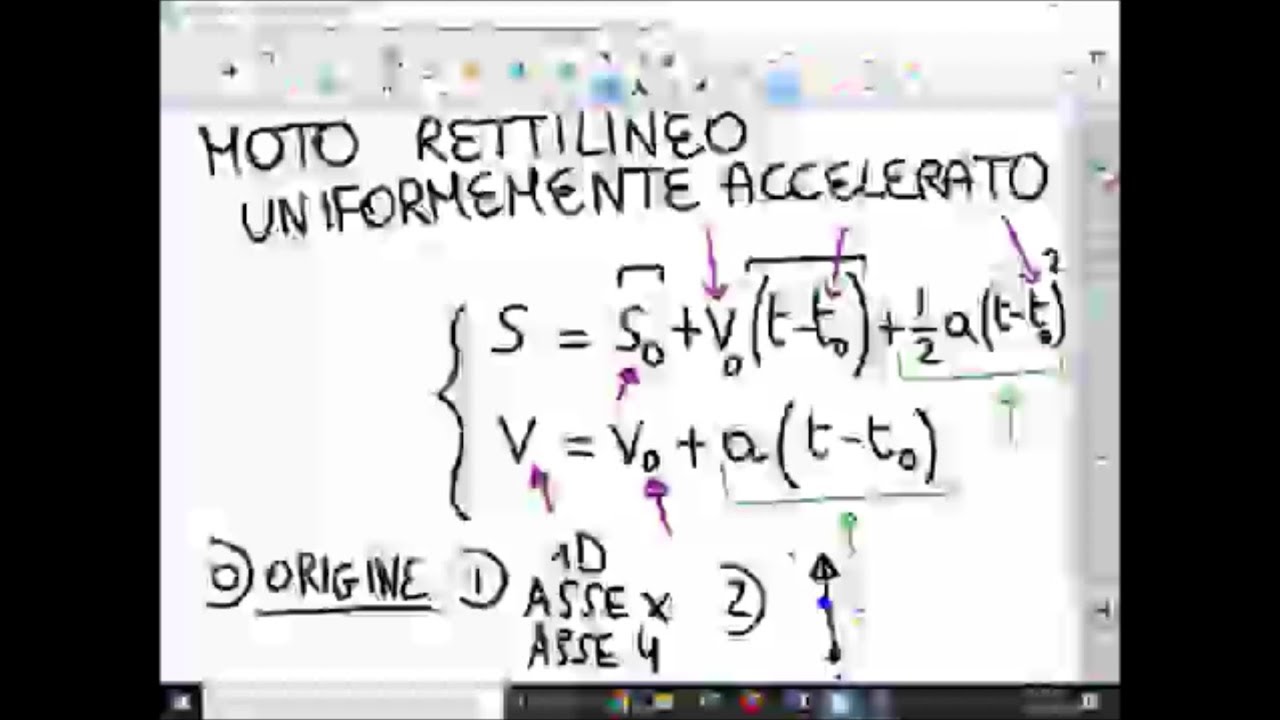 MOTO RETTILINEO
UNIFORMEMENTE ACCELERATO
S = S₀ + V₀(t-t₀) + 1/2 a(t-t₀)²
V = V₀ + a(t-t₀)
0) ORIGINE 1) 1D 2)
ASSE x
ASSE y